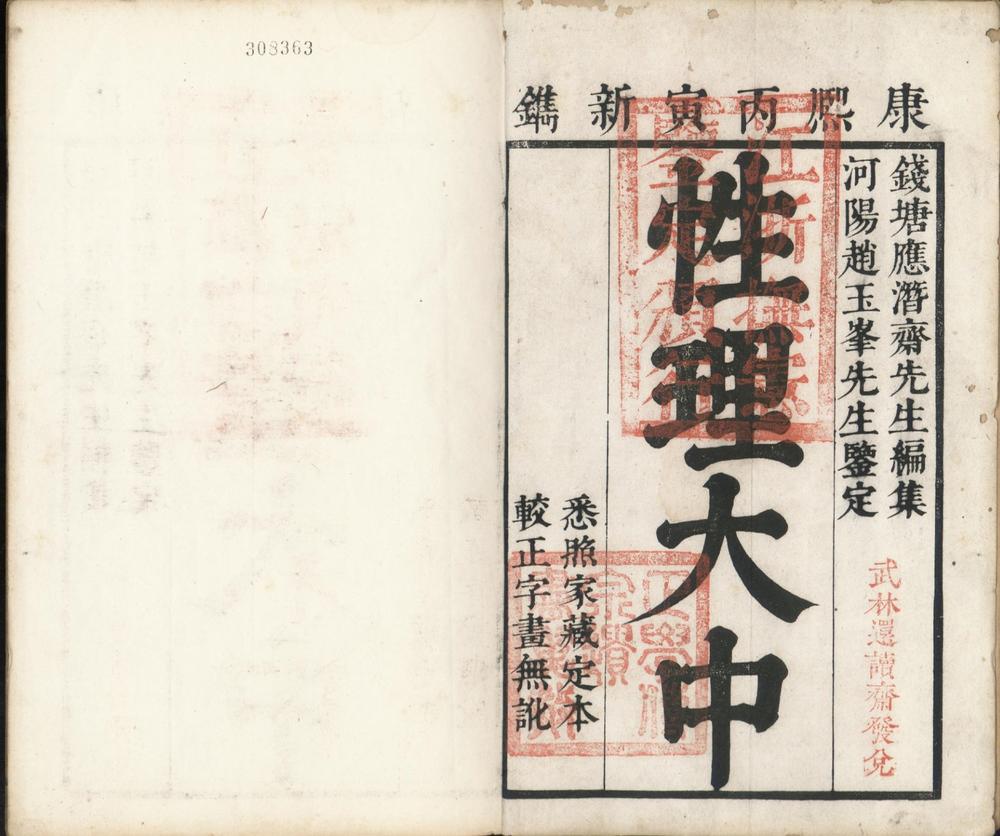 308363
康熙丙寅新鐫
錢塘應潛齋先生編集
河陽趙玉峯先生鑒定
武林還讀齋發兌
性理大中
江浙撫憲
鑒定頒行
悉照家藏定本
較正字畫無訛